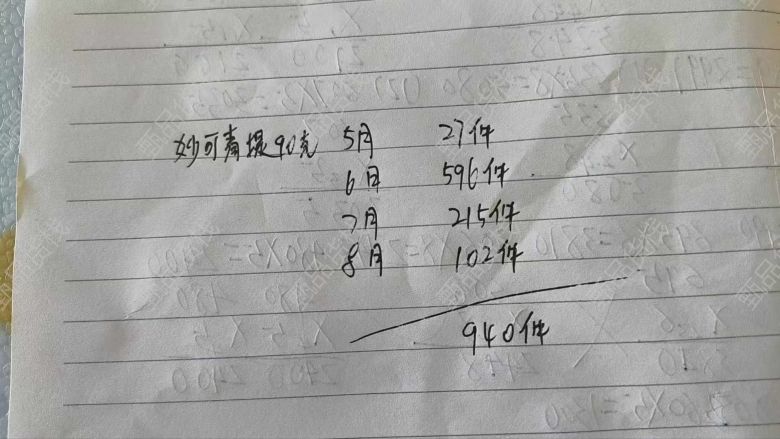 妙可青提90克 5月 27件
6月 596件
7月 215件
8月 102件
940件